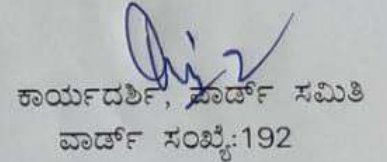 ಕಾರ್ಯದರ್ಶಿ, ವಾರ್ಡ್ ಸಮಿತಿ
ವಾರ್ಡ್ ಸಂಖ್ಯೆ:192